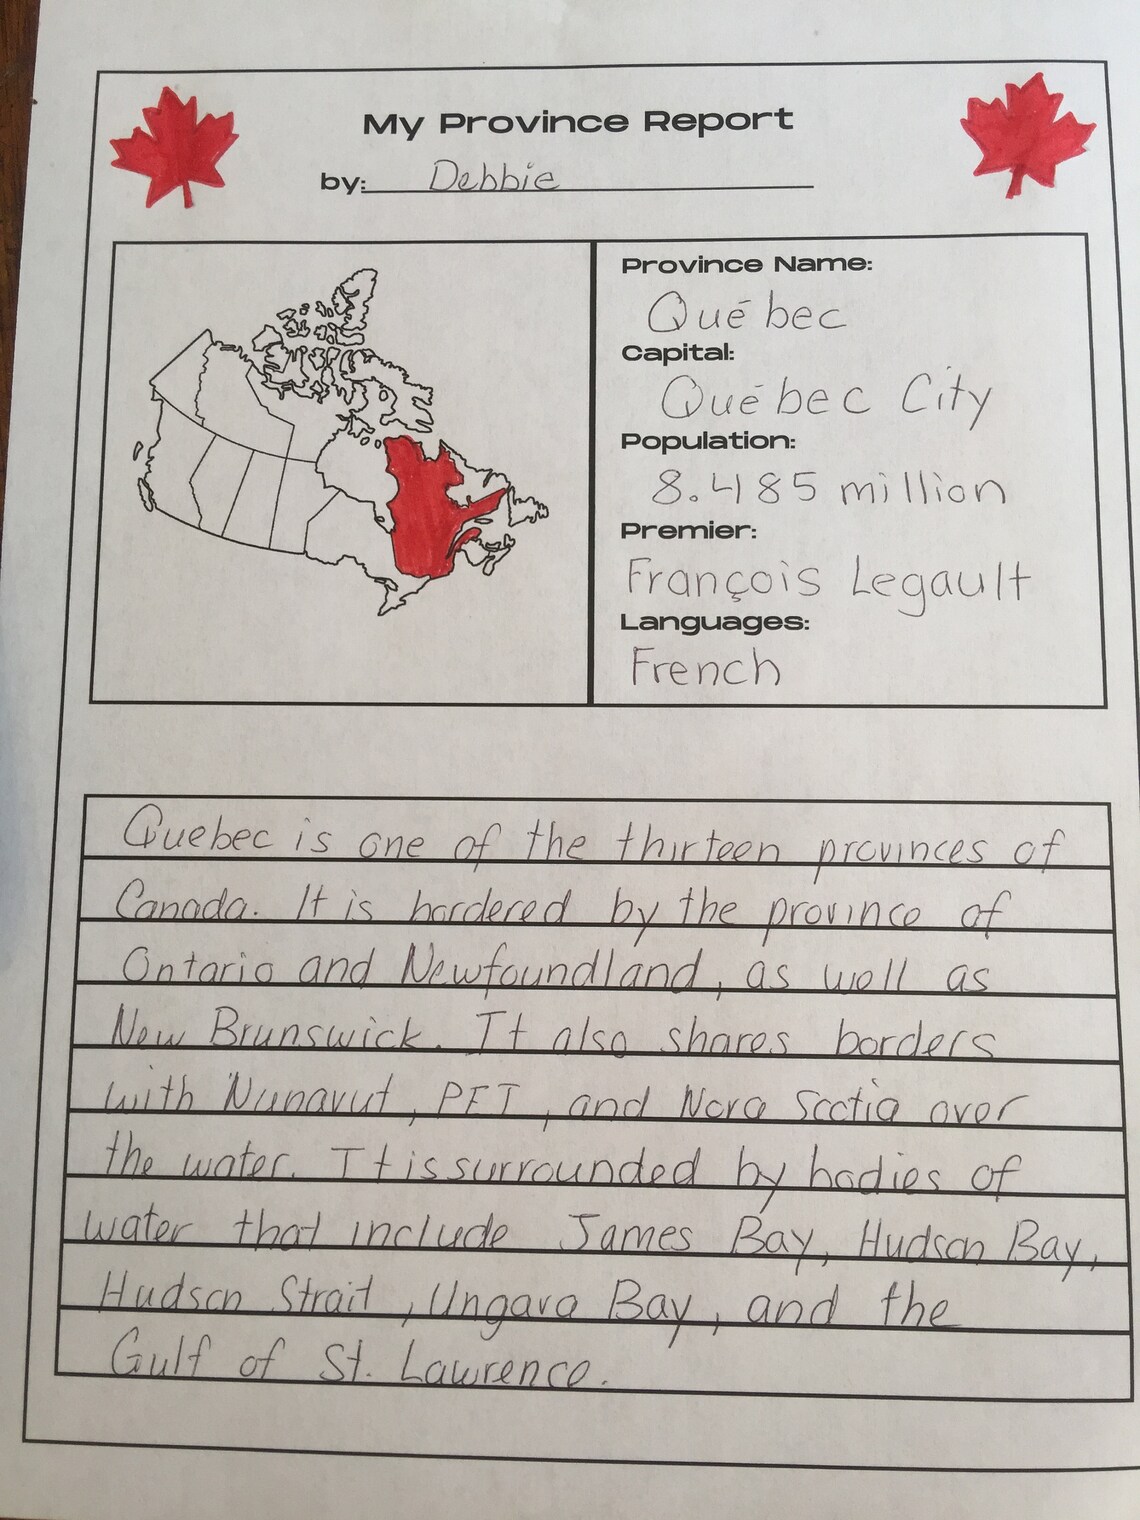 My Province Report
by: Debbie
Province Name:
Québec
Capital:
Québec City
Population:
8.485 million
Premier:
François Legault
Languages:
French
Quebec is one of the thirteen provinces of
Canada. It is bordered by the province of
Ontario and Newfoundland, as well as
New Brunswick. It also shares borders
with Nunavut, PEI, and Nova Scotia over
the water. It is surrounded by bodies of
water that include James Bay, Hudson Bay,
Hudson Strait, Ungava Bay, and the
Gulf of St. Lawrence.